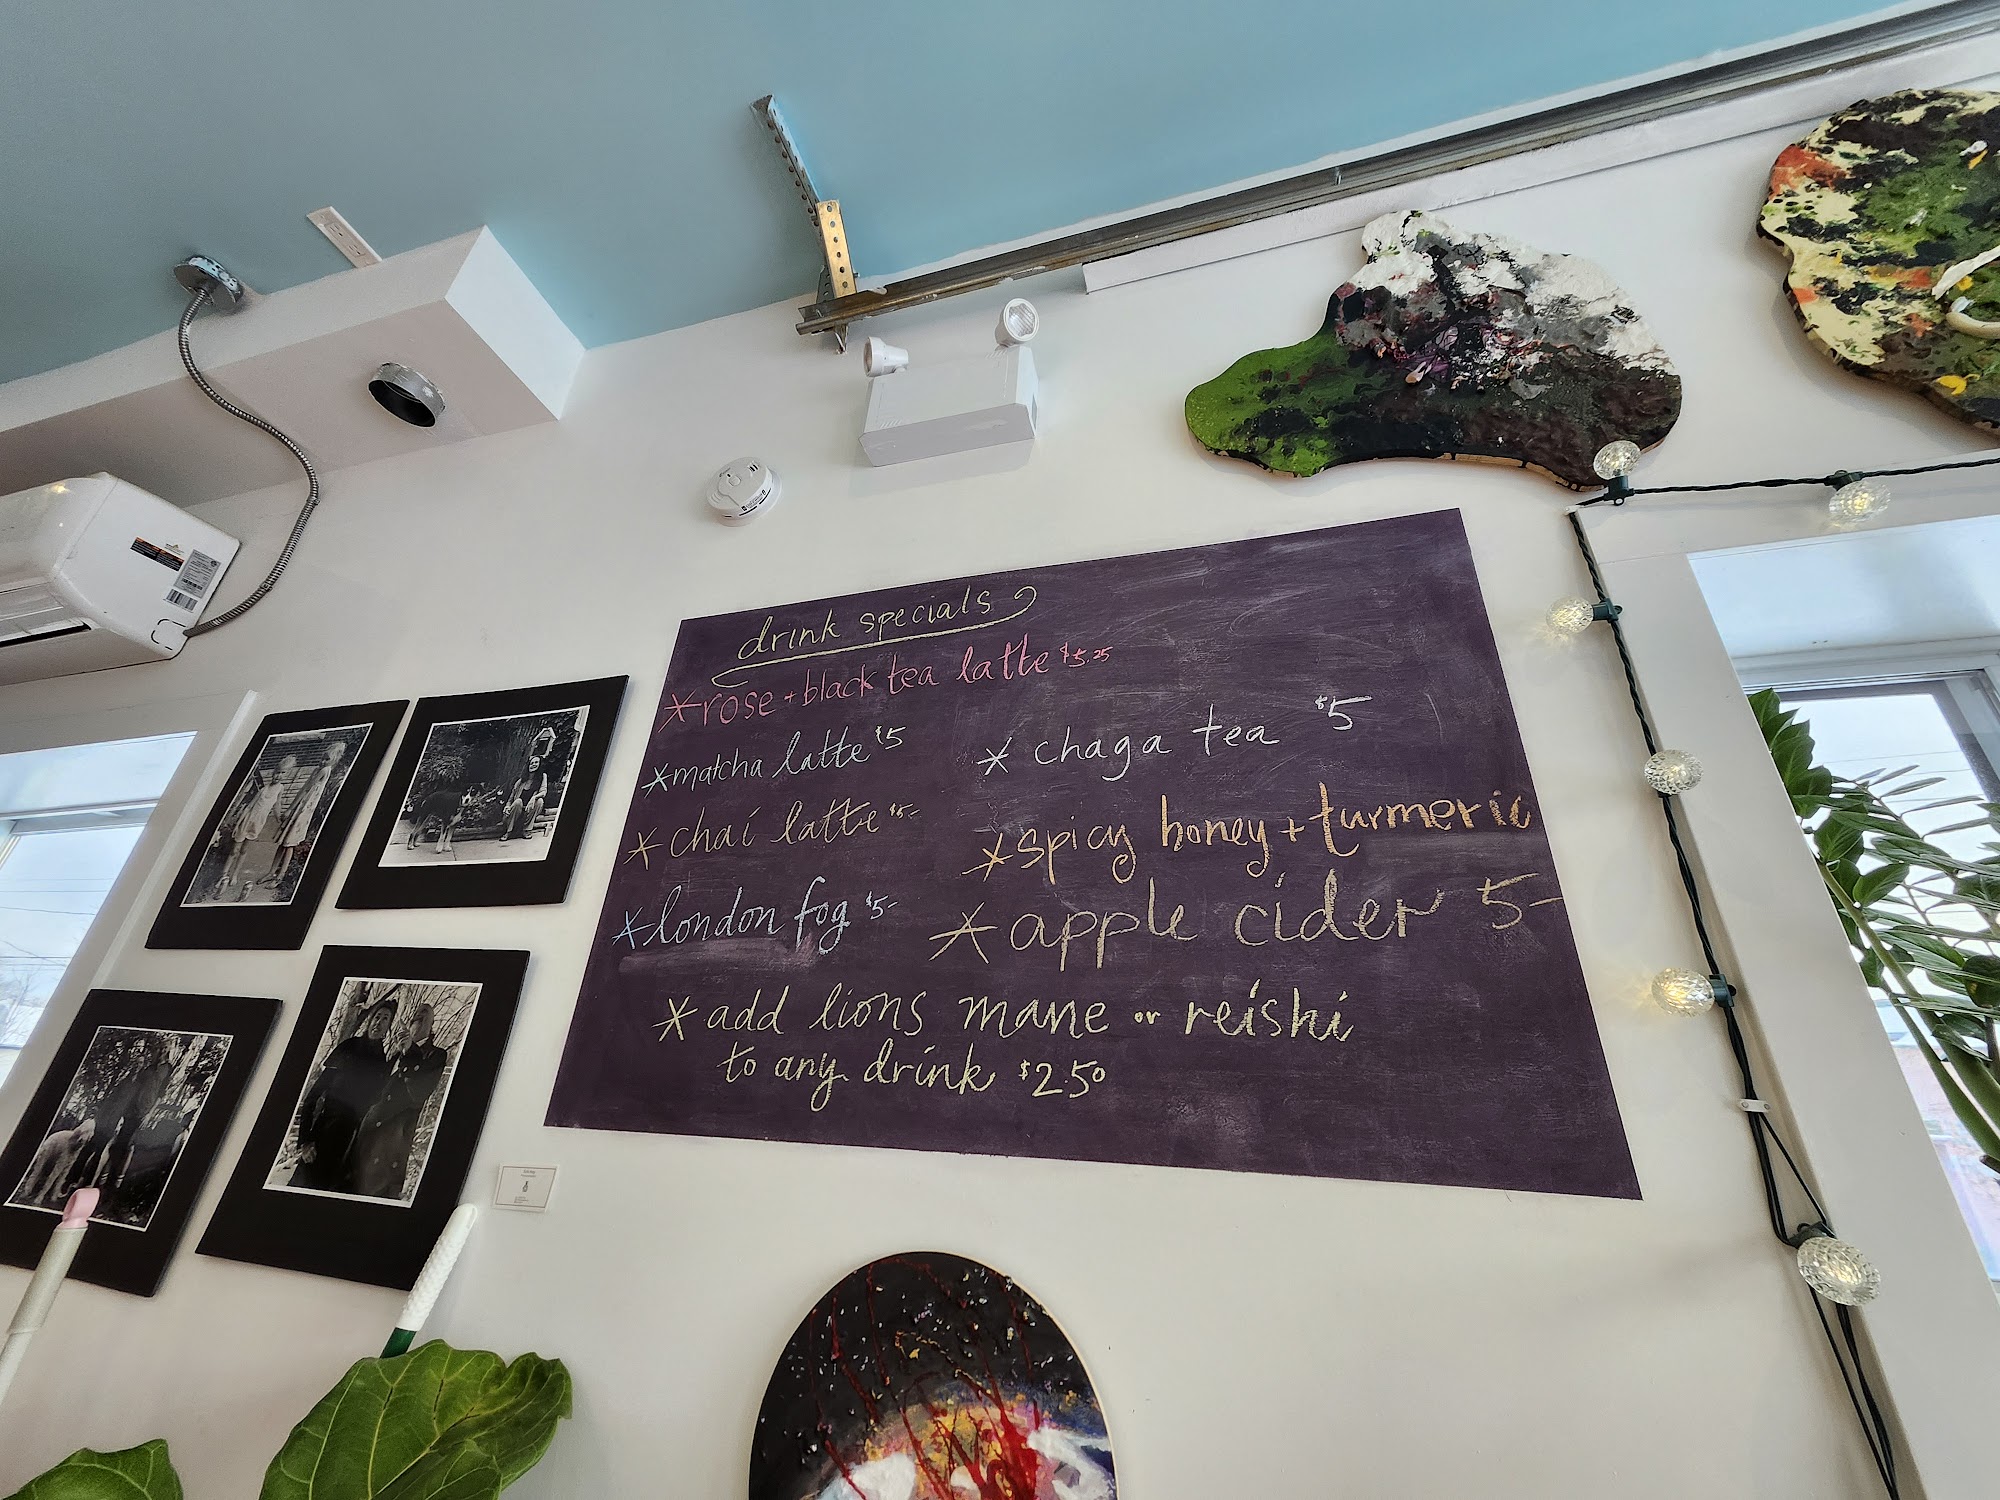 drink specials
*rose + black tea latte $5.25
*matcha latte $5
*chai latte $5-
*london fog $5-
* chaga tea $5
*spicy honey + turmeric
*apple cider 5-
*add lions mane or reishi
to any drink $2.50